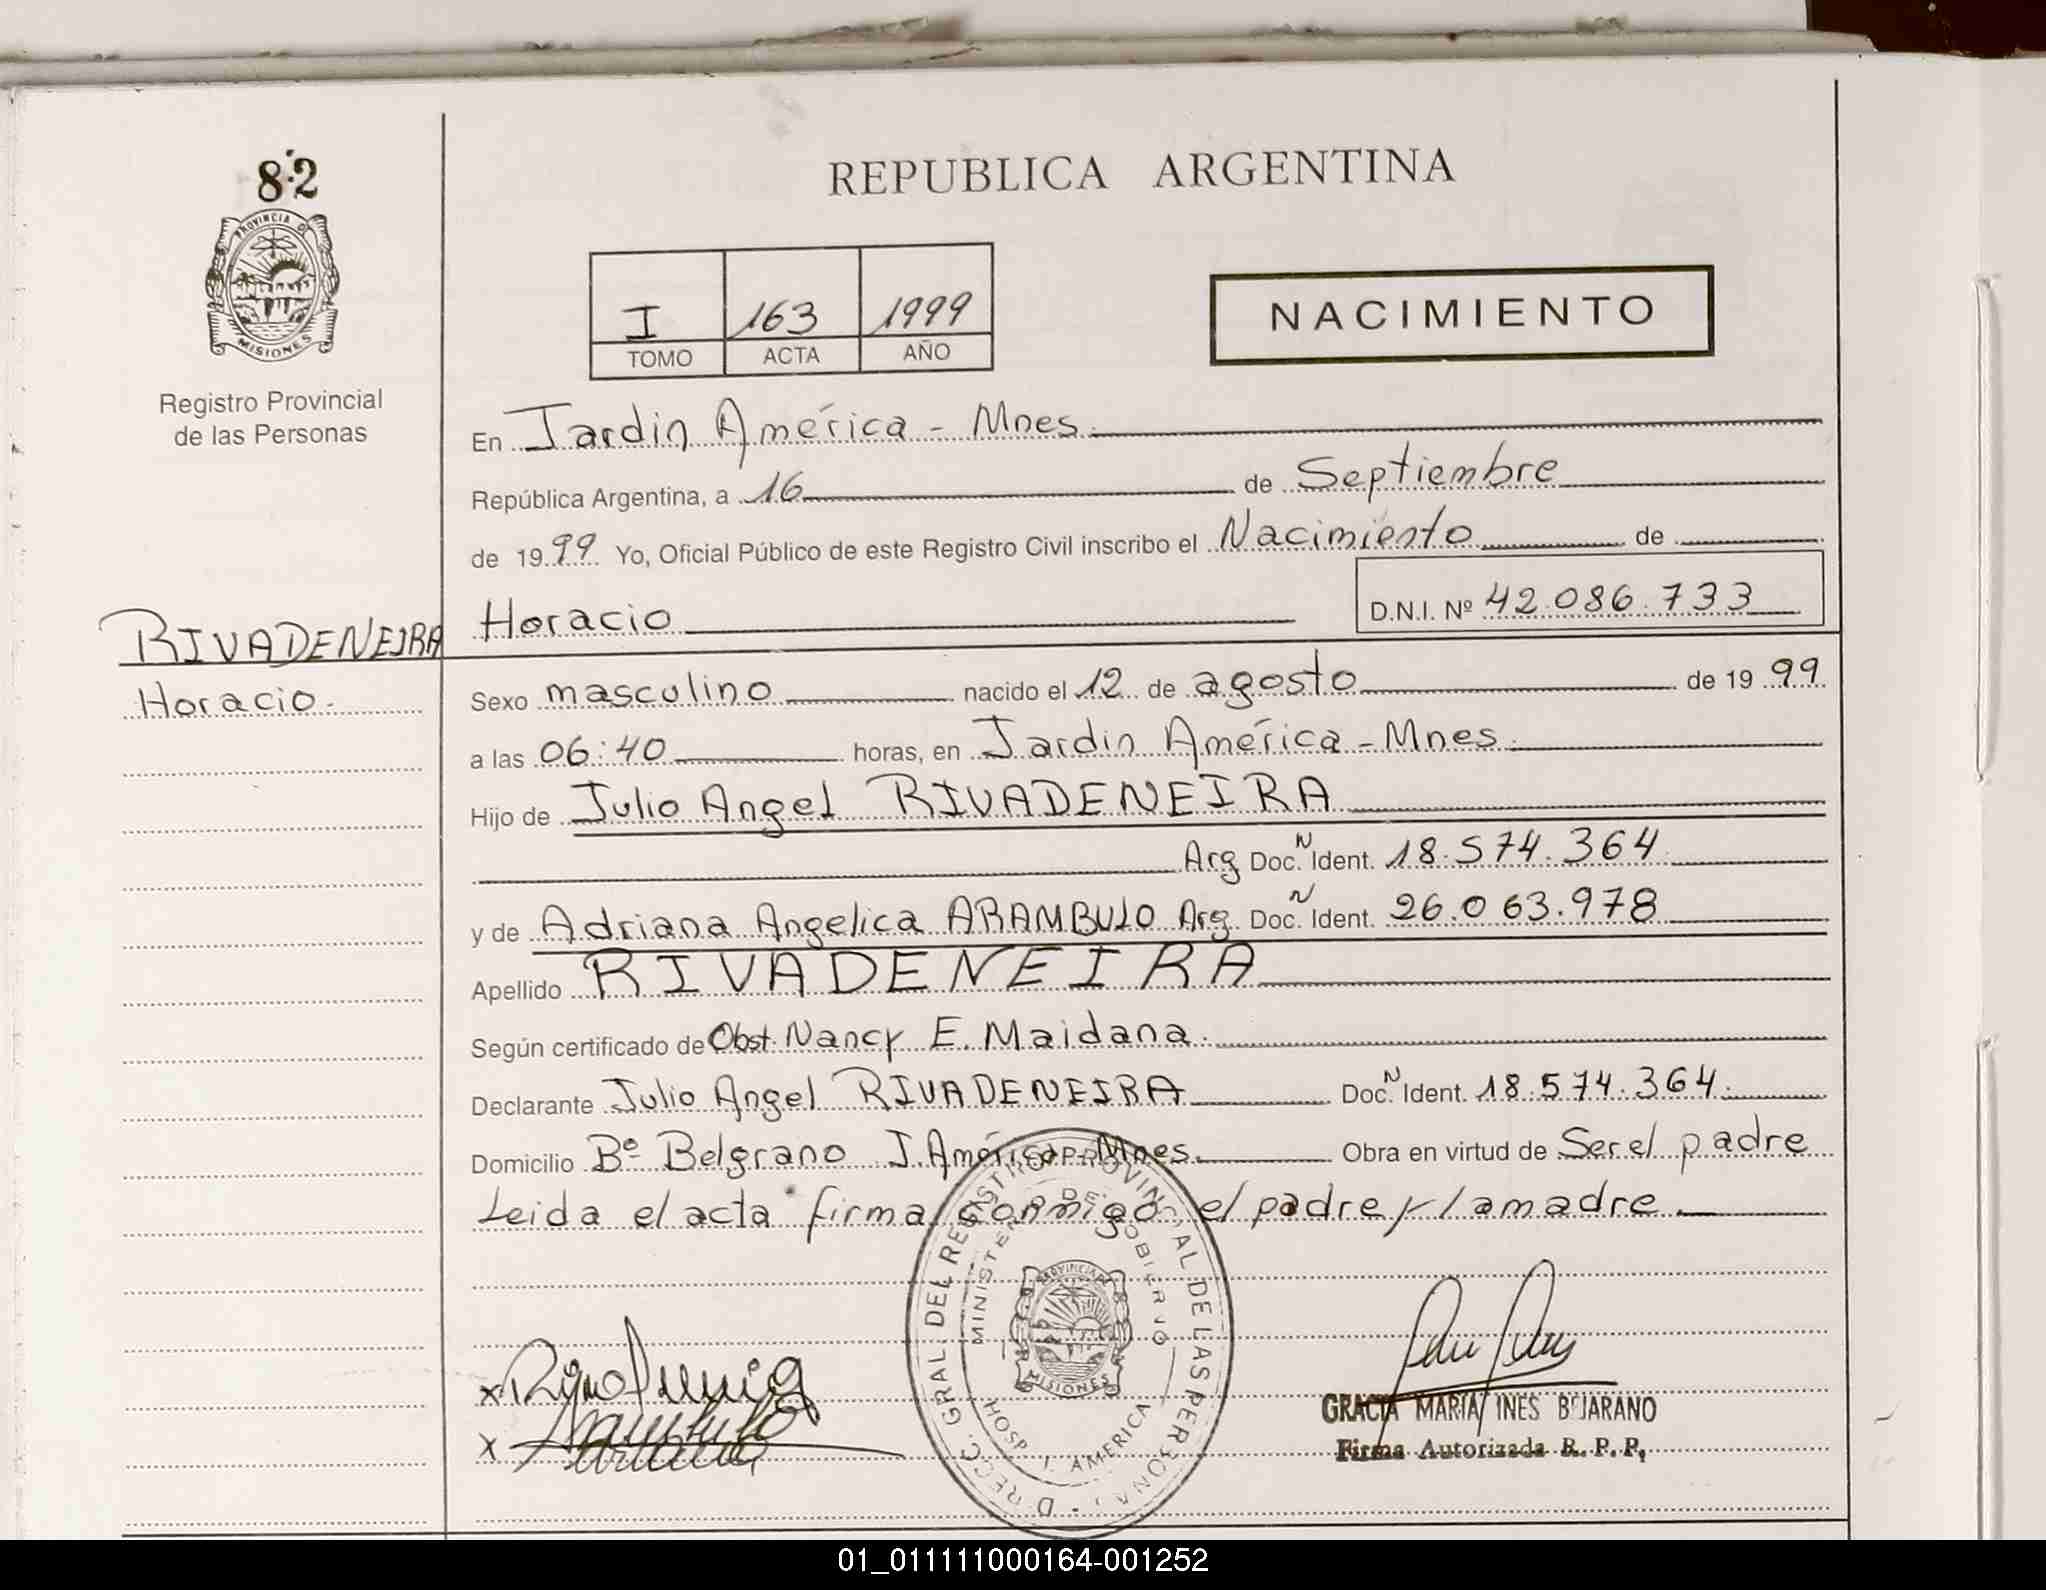 82
PROVINCIA D
MISIONES
Registro Provincial
de las Personas
RIVADENEIRA
Horacio.
REPUBLICA ARGENTINA
I 163 1999
TOMO ACTA AÑO
NACIMIENTO
En Jardin América - Mnes.
República Argentina, a 16 de Septiembre
de 1999 Yo, Oficial Público de este Registro Civil inscribo el Nacimiento de
Horacio D.N.I. Nº 42.086.733
Sexo masculino nacido el 12 de agosto de 1999
a las 06:40 horas, en Jardin América - Mnes.
Hijo de Julio Angel RIVADENEIRA
Arg Doc. N Ident. 18.574.364
y de Adriana Angelica ARAMBULO Arg. Doc. N Ident. 26.063.978
Apellido RIVADENEIRA
Según certificado de Obst. Nancy E. Maidana.
Declarante Julio Angel RIVADENEIRA Doc. N Ident. 18.574.364.
Domicilio Bº Belgrano J. América - Mnes. Obra en virtud de Ser el padre
Leida el acta firma conmigo el padre y la madre
DIRECC. GRAL. DEL REGISTRO PROVINCIAL DE LAS PERSONAS
MINISTERIO DE GOBIERNO
PROVINCIA D
MISIONES
HOSP. J. AMERICA
x
x
GRACIA MARIA INES BEJARANO
Firma Autorizada R. P. P.
01_011111000164-001252